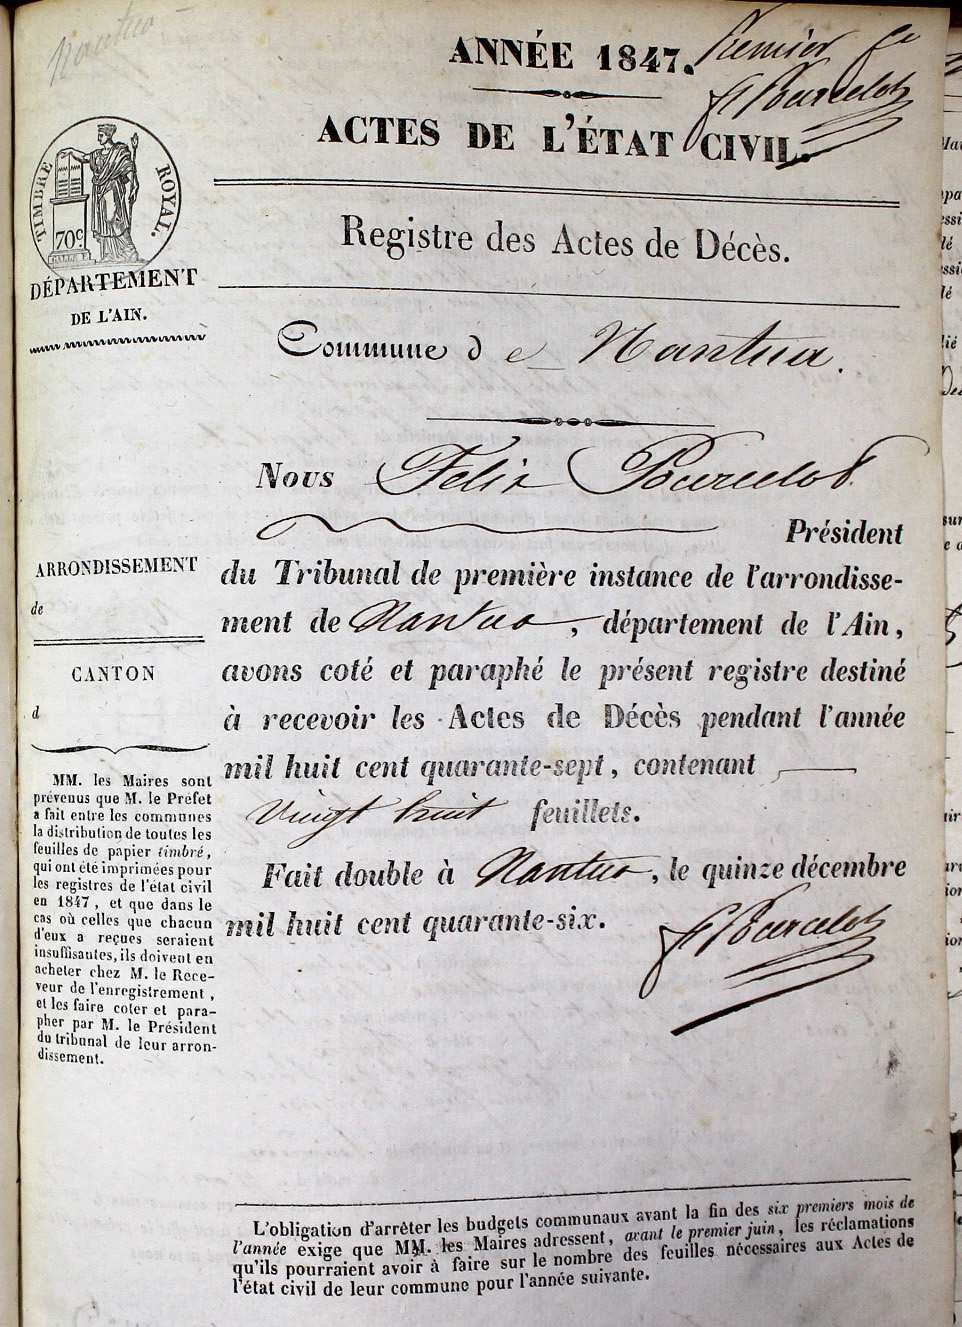 Nantua
ANNÉE 1847.
Premier fo
F Burcelot
ACTES DE L'ÉTAT CIVIL.
TIMBRE ROYAL.
70c
Registre des Actes de Décès.
DÉPARTEMENT
DE L'AIN.
Commune de Nantua.
Nous Felix Burcelot
Président
du Tribunal de première instance de l'arrondisse-
ment de Nantua, département de l'Ain,
avons coté et paraphé le présent registre destiné
à recevoir les Actes de Décès pendant l'année
mil huit cent quarante-sept, contenant
Vingt huit feuillets.
Fait double à Nantua, le quinze décembre
mil huit cent quarante-six.
F Burcelot
ARRONDISSEMENT
de
CANTON
d
MM. les Maires sont
prévenus que M. le Préfet
a fait entre les communes
la distribution de toutes les
feuilles de papier timbré,
qui ont été imprimées pour
les registres de l'état civil
en 1847, et que dans le
cas où celles que chacun
d'eux a reçues seraient
insuffisantes, ils doivent en
acheter chez M. le Rece-
veur de l'enregistrement,
et les faire coter et para-
pher par M. le Président
du tribunal de leur arron-
dissement.
L'obligation d'arrêter les budgets communaux avant la fin des six premiers mois de
l'année exige que MM. les Maires adressent, avant le premier juin, les réclamations
qu'ils pourraient avoir à faire sur le nombre des feuilles nécessaires aux Actes de
l'état civil de leur commune pour l'année suivante.